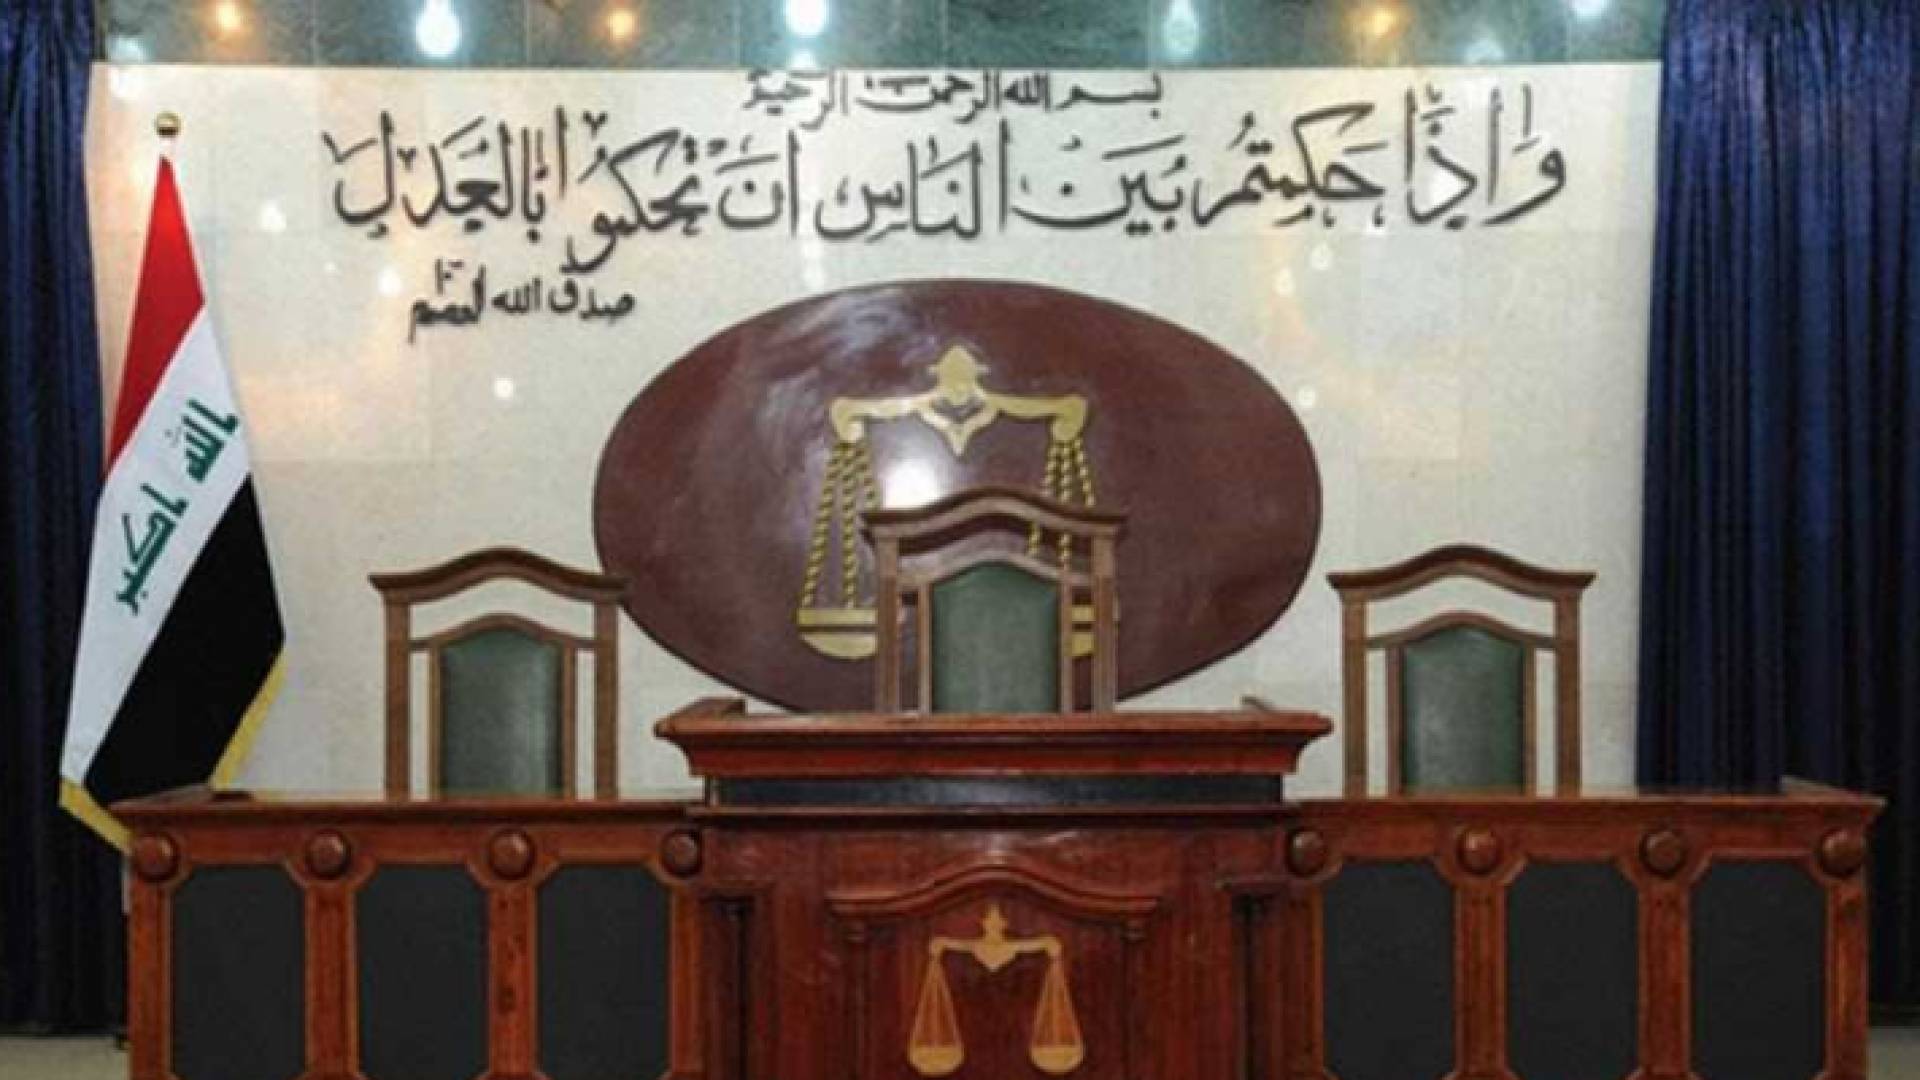 بسم الله الرحمن الرحيم
وَإِذَا حَكَمْتُمْ بَيْنَ النَّاسِ أَنْ تَحْكُمُوا بِالْعَدْلِ
صدق الله العظيم
الله اكبر